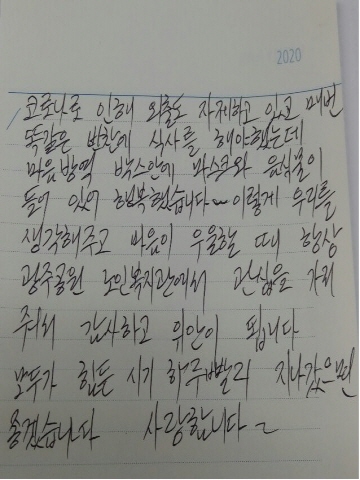 2020
코로나로 인해 외출도 자제하고 있고 매번
똑같은 반찬에 식사를 해야했는데
마음방역 박스안에 마스크와 음식물이
들어 있어 행복했습니다~ 이렇게 우리를
생각해주고 마음이 우울할 때 항상
광주공원 노인복지관에서 관심을 가져
주셔서 감사하고 위안이 됩니다
모두가 힘든 시기 하루빨리 지나갔으면
좋겠습니다 사랑합니다~